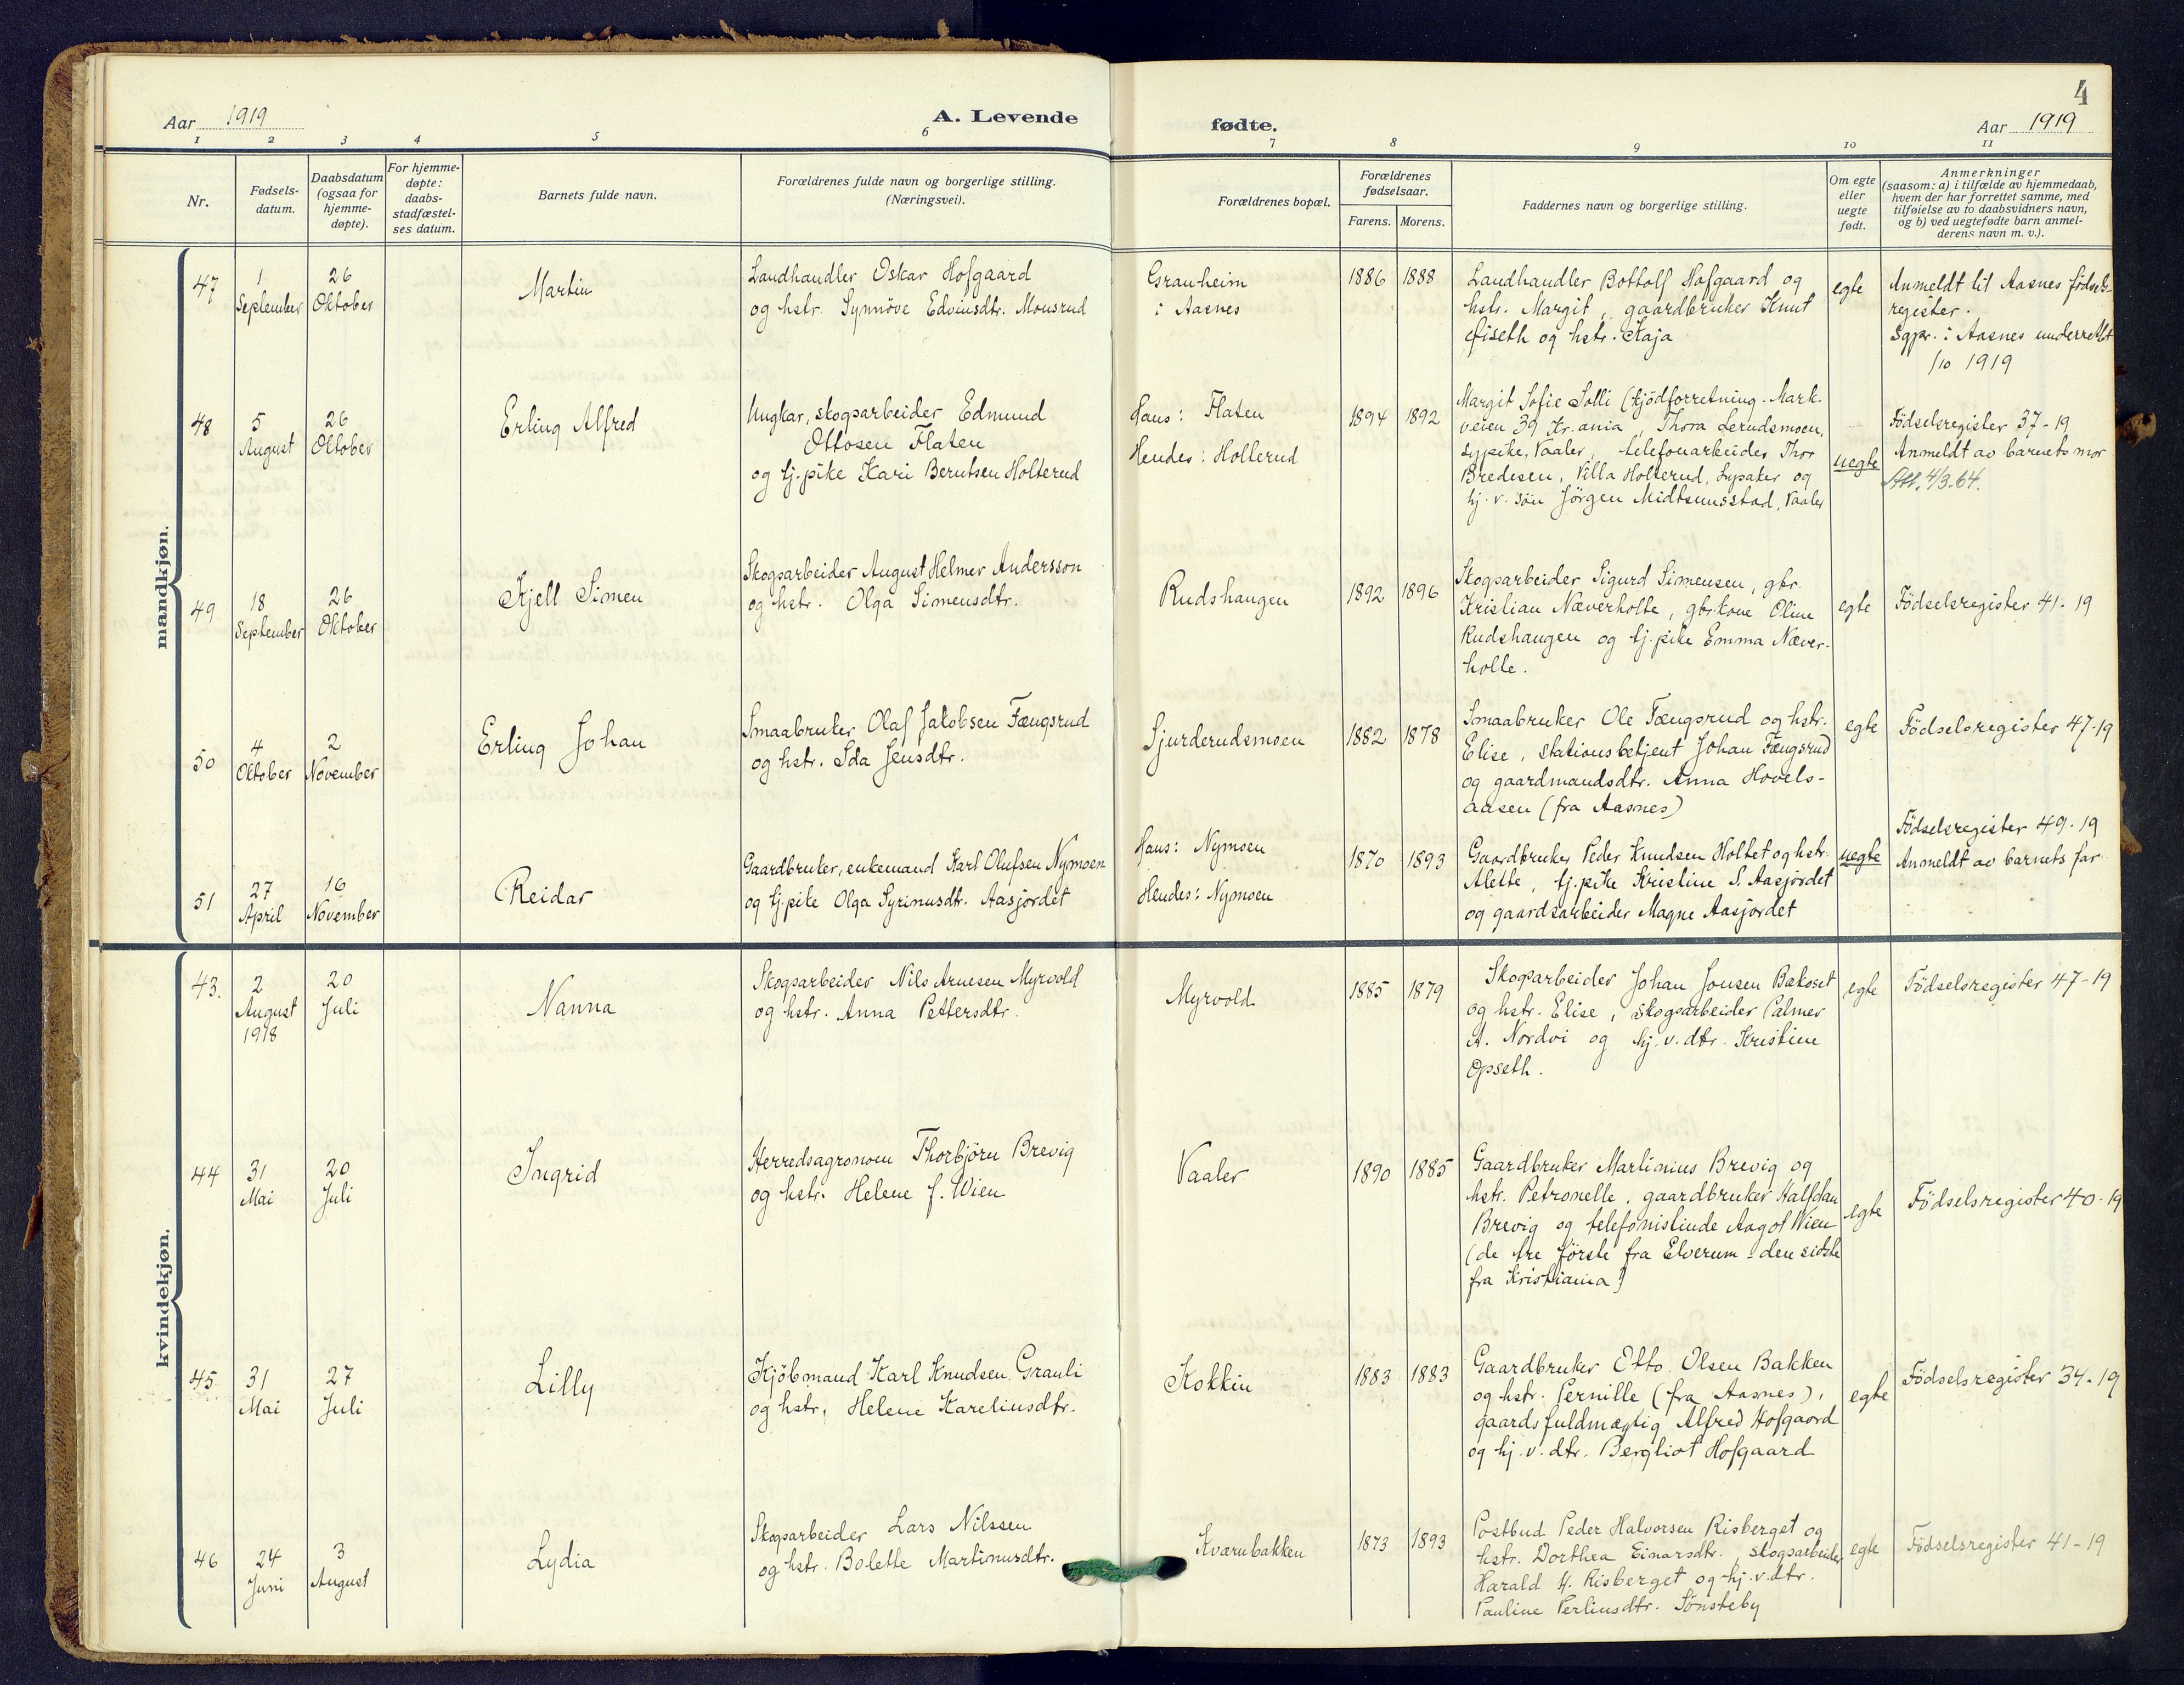 4
Aar 1919
A. Levende
fødte.
Aar 1919
1 2 3 4 5 6 7 8 9 10 11
Nr.
Fødsels-
datum.
Daabsdatum
(ogsaa for
hjemme-
døpte).
For hjemme-
døpte:
daabs-
stadfæstel-
ses datum.
Barnets fulde navn.
Forældrenes fulde navn og borgerlige stilling.
(Næringsvei).
Forældrenes bopæl.
Forældrenes
fødselsaar.
Farens. Morens.
Faddernes navn og borgerlige stilling.
Om egte
eller
uegte
født.
Anmerkninger
(saasom: a) i tilfælde av hjemmedaab,
hvem der har forrettet samme, med
tilføielse av to daabsvidners navn,
og b) ved uegtefødte barn anmel-
derens navn m. v.).
mandkjøn.
47
1
September
26
Oktober
Martin
Landhandler Oskar Hofgaard
og hstr. Synnöve Edvinsdtr. Monsrud
Granheim
i Aasnes
1886
1888
Landhandler Bottolf Hofgaard og
hstr. Margit, gaardbruker Knut
Gjseth og hstr. Kaja
egte
Anmeldt til Aasnes födsels-
register.
Sgpr. i Aasnes underrettet
/10 1919
48
5
August
26
Oktober
Erling Alfred
Ungkar, skogsarbeider Edmund
Ottosen Flaten
og tj.pike Kari Berntsen Holterud
Hans: Flaten
Hendes: Hollerud
1894
1892
Margit Sofie Solli (kjödforretning. Mark-
veien 39 Kr.ania, Thora Lerudsmoen,
sypike, Vaaler, telefonarbeider Thor
Bredesen, Villa Holterud, Lysaker og
hj. v. sön Jörgen Midtsundstad, Vaaler
uegte
Födselsregister 37-19
Anmeldt av barnets mor
Att. 4/3.64.
49
18
September
26
Oktober
Kjell Simen
Skogsarbeider August Helmer Andersson
og hstr. Olga Simensdtr.
Rudshaugen
1892
1896
Skogsarbeider Sigurd Simensen, gbr.
Kristian Næverholte, gbr.kone Oline
Rudshaugen og tj.pike Emma Næver-
holte.
egte
Födselsregister 41-19
50
4
Oktober
2
November
Erling Johan
Smaabruker Olaf Jakobsen Fængsrud
og hstr. Ida Jensdtr.
Sjurderudsmoen
1882
1878
Smaabruker Ole Fængsrud og hstr.
Elise, stationsbetjent Johan Fængsrud
og gaardmandsdtr. Anna Hovels-
aasen (fra Aasnes)
egte
Födselsregister 47-19
51
27
April
16
November
Reidar
Gaardbruker, enkemand Karl Olufsen Nymoen
og tj.pike Olga Syrinusdtr. Aasjordet
Hans: Nymoen
Hendes: Nymoen
1870
1893
Gaardbruker Peder Knudsen Holtet og hstr.
Alette, tj.pike Kristine S. Aasjordet
og gaardsarbeider Magne Aasjordet
uegte
Födselsregister 49-19
Anmeldt av barnets far
kvindekjøn.
43.
2
August
1918
20
Juli
Nanna
Skogsarbeider Nils Arnesen Myrvold
og hstr. Anna Pettersdtr.
Myrvold
1885
1879
Skogsarbeider Johan Jonsen Bakoset
og hstr. Elise, skogsarbeider Palmer
A. Nordvi og hj. v. dtr. Kristine
Opseth.
egte
Födselsregister 47-19
44
31
Mai
20
Juli
Ingrid
Herredsagronom Thorbjörn Brevig
og hstr. Helene f. Wien
Vaaler
1890
1885
Gaardbruker Martinius Brevig og
hstr. Petronelle, gaardbruker Halfdan
Brevig og telefonistinde Aagot Wien
(de tre förste fra Elverum - den sidste
fra Kristiania)
egte
Födselsregister 40-19
45
31
Mai
27
Juli
Lilly
Kjöbmand Karl Knudsen Granli
og hstr. Helene Kareliusdtr.
Kokkin
1883
1883
Gaardbruker Otto Olsen Bakken
og hstr. Pernille (fra Aasnes),
gaardsfuldmægtig Alfred Hofgaard
og hj. v. dtr. Bergliot Hofgaard
egte
Födselsregister 34-19
46
24
Juni
3
August
Lydia
Skogsarbeider Lars Nilssen
og hstr. Bolette Martinusdtr.
Kværnbakken
1873
1893
Postbud Peder Halvorsen Risberget og
hstr. Dorthea Einarsdtr., skogsarbeider
Harald H. Risberget og hj. v. dtr.
Pauline Perlinsdtr. Sönsteby
egte
Födselsregister 41-19